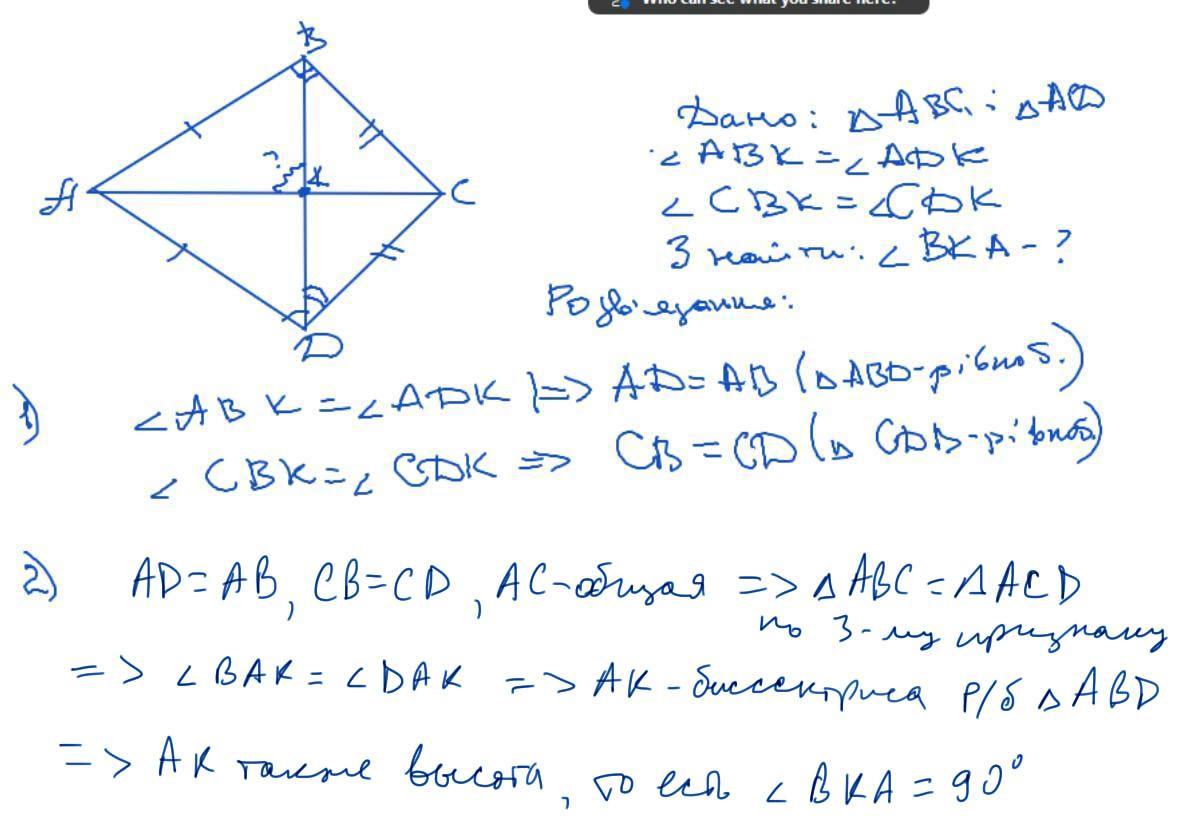 Who can see what you share here?
B
?
K
A
C
D
Дано: △ABC; △ACD
∠ABK = ∠ADK
∠CBK = ∠CDK
Знайти: ∠BKA - ?
Розв'язання:
1) ∠ABK = ∠ADK |=> AD = AB (△ABD - рівноб.)
∠CBK = ∠CDK => CB = CD (△CDB - рівноб.)
2) AD = AB, CB = CD, AC - общая => △ABC = △ACD
по 3-му признаку
=> ∠BAK = ∠DAK => AK - биссектриса р/б △ABD
=> AK также высота, то есть ∠BKA = 90°